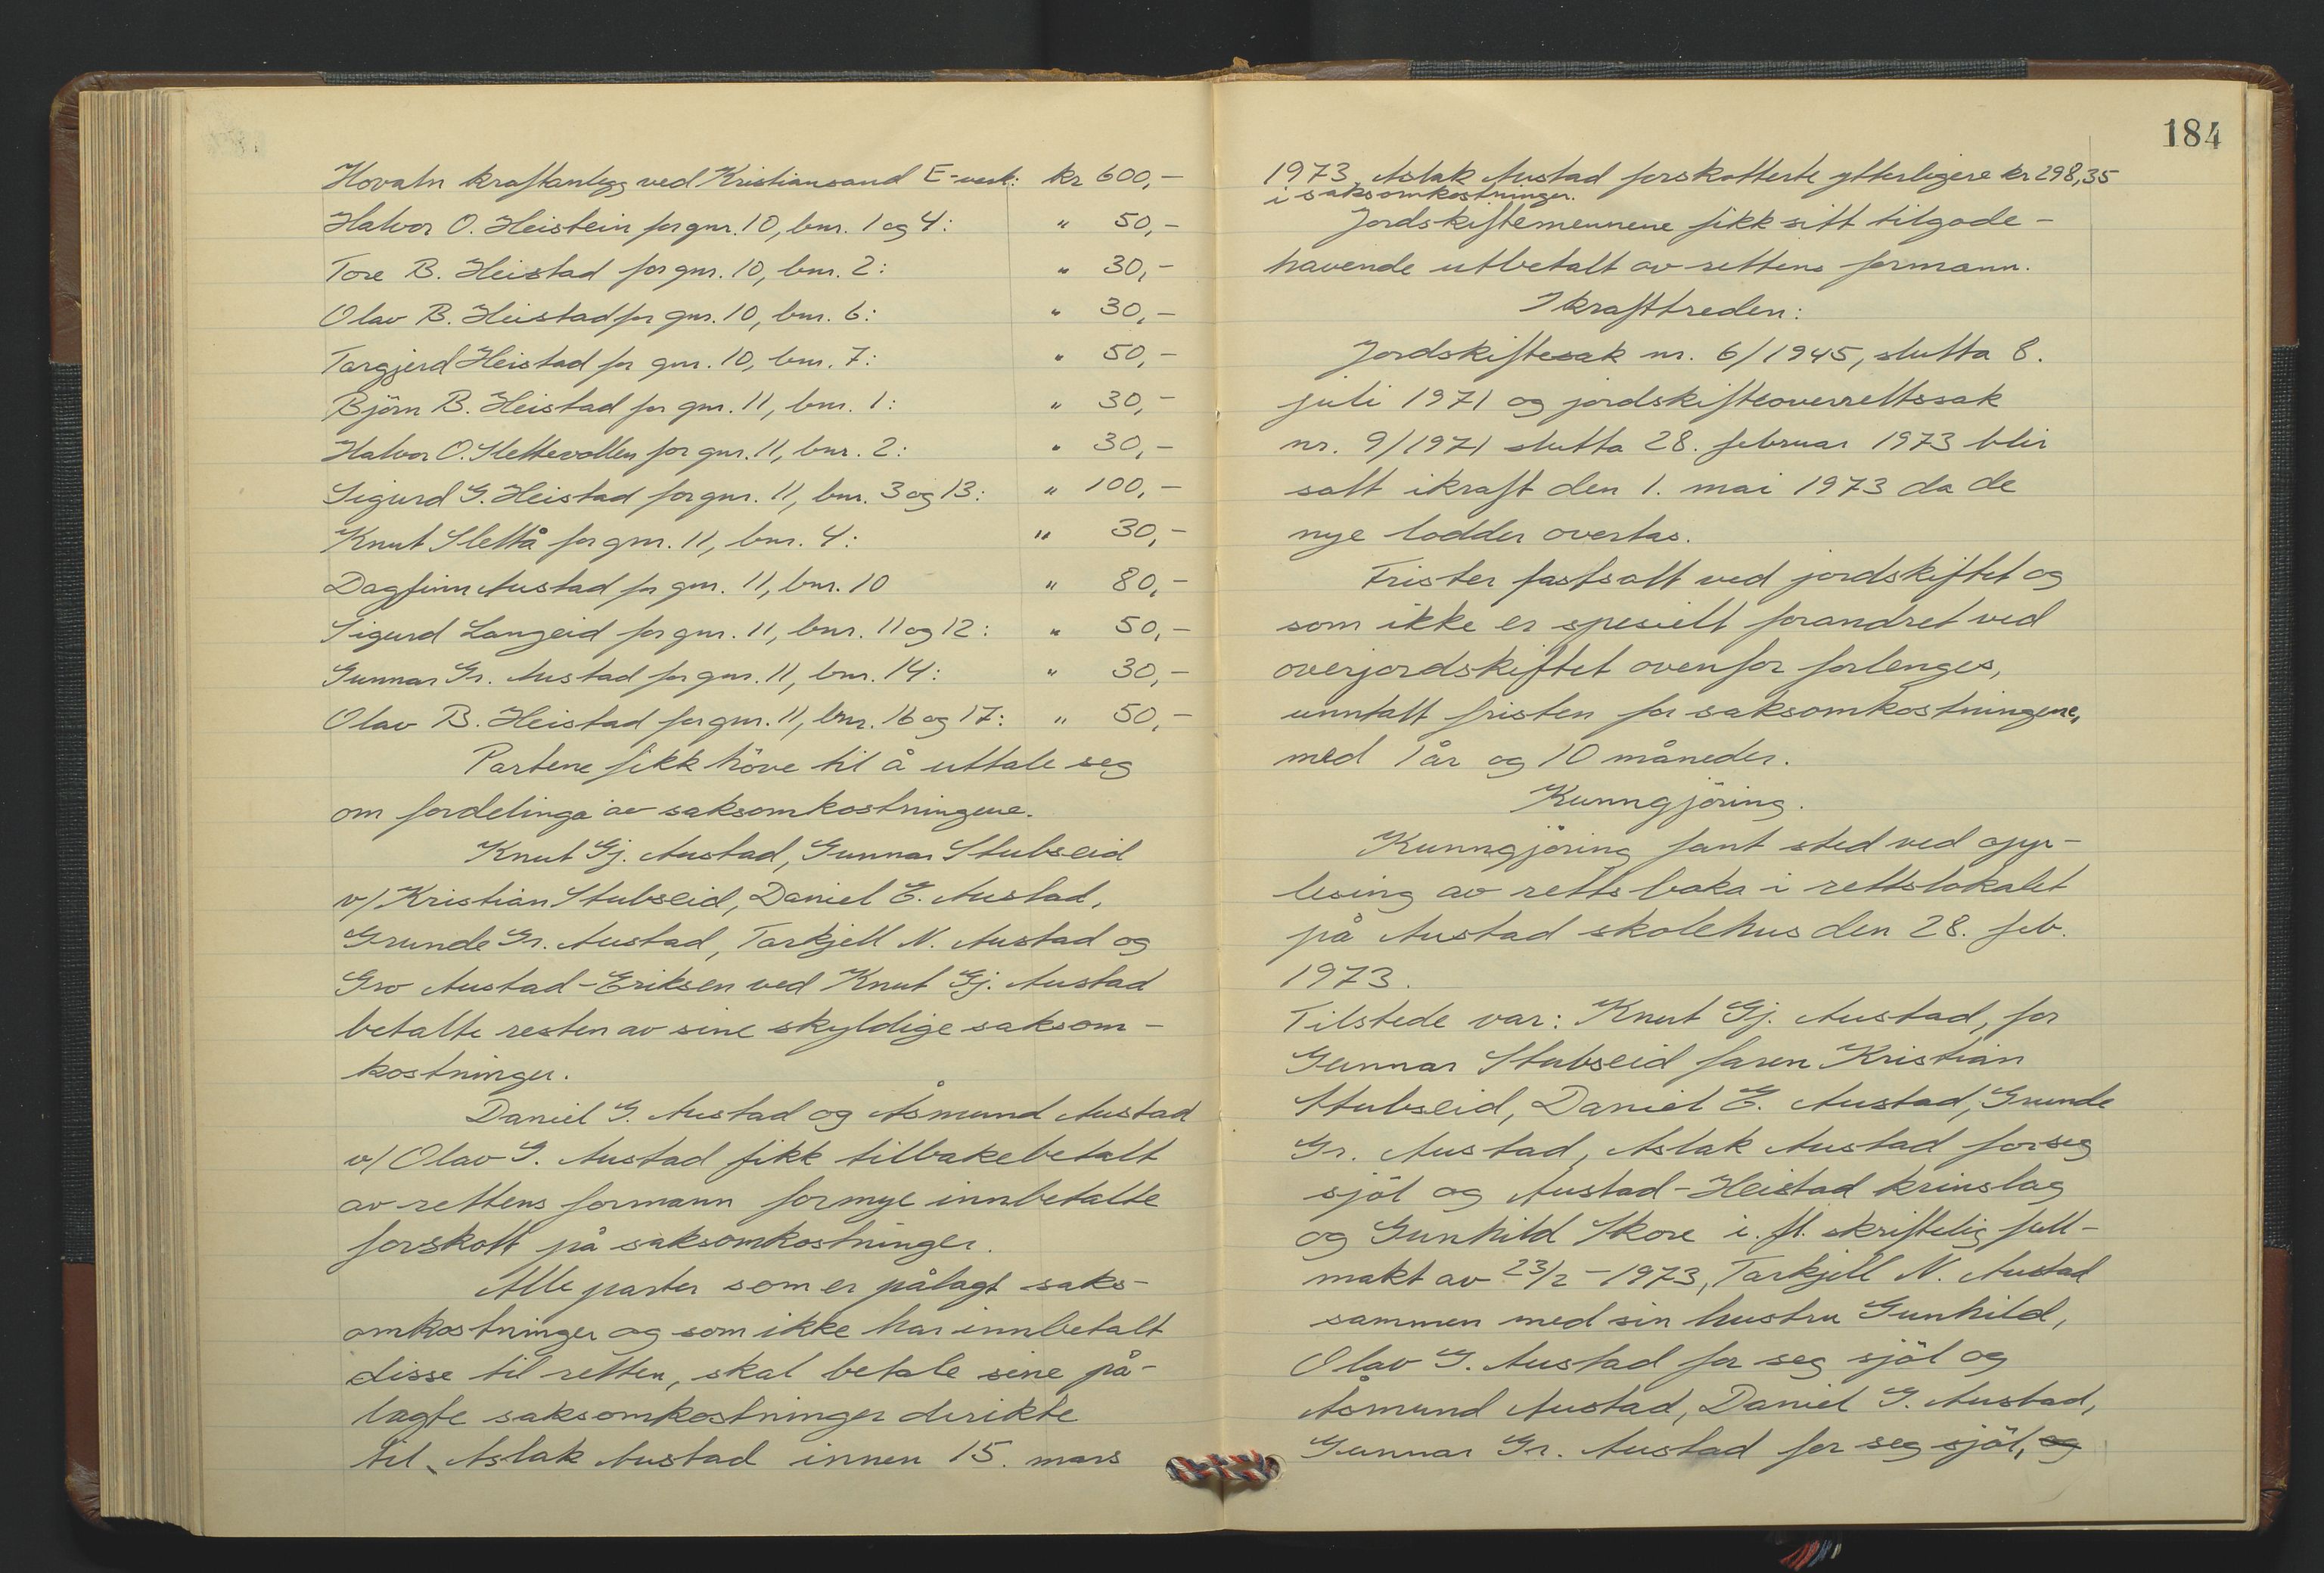 Hovatn kraftanlegg ved Kristiansand E-verk: kr 600,-
Halvor O. Heistein for gnr. 10, bnr. 1 og 4: " 50,-
Tore B. Heistad for gnr. 10, bnr. 2: " 30,-
Olav B. Heistad for gnr. 10, bnr. 6: " 30,-
Targjerd Heistad for gnr. 10, bnr. 7: " 50,-
Björn B. Heistad for gnr. 11, bnr. 1: " 30,-
Halvor O. Slettevollen for gnr. 11, bnr. 2: " 30,-
Sigurd G. Heistad for gnr. 11, bnr. 3 og 13: " 100,-
Knut Slettå for gnr. 11, bnr. 4: " 30,-
Dagfinn Austad for gnr. 11, bnr. 10 " 80,-
Sigurd Langeid for gnr. 11, bnr. 11 og 12: " 50,-
Gunnar Gr. Austad for gnr. 11, bnr. 14: " 30,-
Olav B. Heistad for gnr. 11, bnr. 16 og 17: " 50,-
Partene fikk höve til å uttale seg
om fordelinga av saksomkostningene.
Knut Gj. Austad, Gunnar Stubseid
v/ Kristian Stubseid, Daniel E. Austad,
Grunde Gr. Austad, Tarkjell N. Austad og
Gro Austad-Eriksen ved Knut Gj. Austad
betalte resten av sine skyldige saksom-
kostninger.
Daniel G. Austad og Åsmund Austad
v/ Olav G. Austad fikk tilbakebetalt
av rettens formann formye innbetalte
forskott på saksomkostninger.
Alle parter som er pålagt saks-
omkostninger og som ikke har innbetalt
disse til retten, skal betale sine på-
lagte saksomkostninger direkte
til Aslak Austad innen 15. mars
184
1973. Aslak Austad forskotterte ytterligere kr 298,35
i saksomkostninger.
Jordskiftemennene fikk sitt tilgode-
havende utbetalt av rettens formann.
Ikrafttreden:
Jordskiftesak nr. 6/1945, slutta 8.
juli 1971 og jordskifteoverrettssak
nr. 9/1971 slutta 28. februar 1973 blir
satt ikraft den 1. mai 1973 da de
nye lodder overtas.
Frister fastsatt ved jordskiftet og
som ikke er spesielt forandret ved
overjordskiftet ovenfor forlenges,
unntatt fristen for saksomkostningene,
med 1 år og 10 måneder.
Kunngjöring.
Kunngjöring fant sted ved opp-
lesing av rettsboka i rettslokalet
på Austad skolehus den 28. feb.
1973.
Tilstede var: Knut Gj. Austad, for
Gunnar Stubseid faren Kristian
Stubseid, Daniel E. Austad, Grunde
Gr. Austad, Aslak Austad for seg
sjöl og Austad-Heistad krinslag
og Gunhild Skore i.fl. skriftelig full-
makt av 23/2-1973, Tarkjell N. Austad
sammen med sin hustru Gunhild,
Olav G. Austad for seg sjöl og
Åsmund Austad, Daniel G. Austad,
Gunnar Gr. Austad for seg sjöl, og